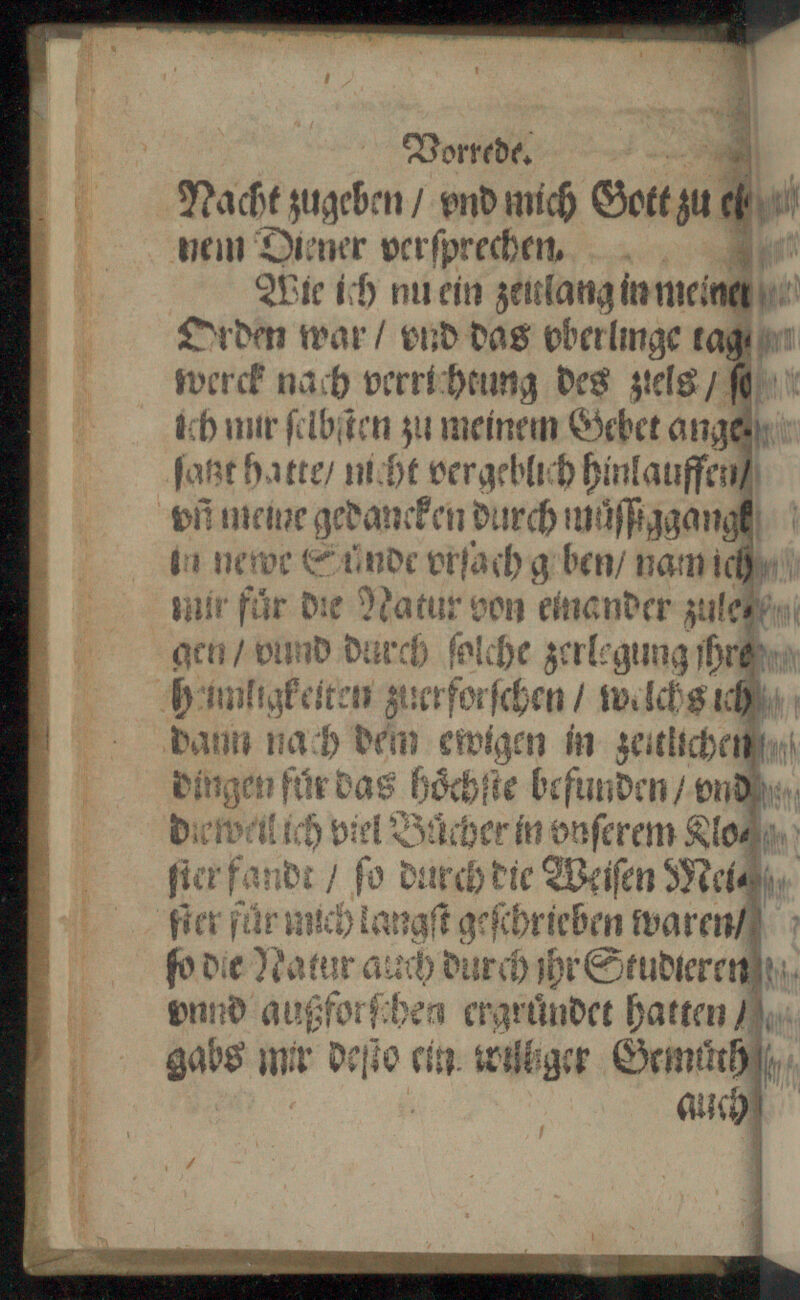 Vorrede.
Nacht zugeben / vnd mich Gott zu ei⸗
nem Diener verſprechen.
Wie ich nu ein zeitlang in meinem
Orden war / vnd das oberlinge tag⸗
werck nach verrichtung des ziels / ſo
ich mir ſelbſten zu meinem Gebet ange⸗
ſatzt hatte / nicht vergeblich hinlauffen /
vñ meine gedancken durch muͤſſiggang
in newe Suͤnde vrſach geben / nam ich
mir fuͤr die Natur von einander zule⸗
gen / vnnd durch ſolche zerlegung jhre
heimligkeiten zuerforſchen / welchs ich
dann nach dem ewigen in zeitlichen
dingen fuͤr das hoͤchſte befunden / vnd
dieweil ich viel Buͤcher in vnſerem Klo⸗
ſter fandt / ſo durch die Weiſen Mei⸗
ſter fuͤr mich langſt geſchrieben waren /
ſo die Natur auch durch jhr Studieren
vnnd außforſchen ergruͤndet hatten /
gabs mir deſto ein williger Gemuͤth /
auch